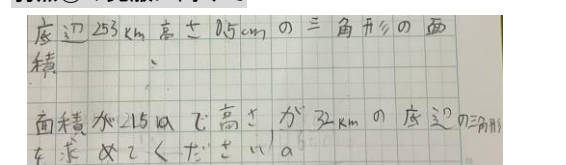 底辺253km高さ0.5cmの三角形の面
積
面積が215haで高さが32kmの底辺の三角形
を求めてください。